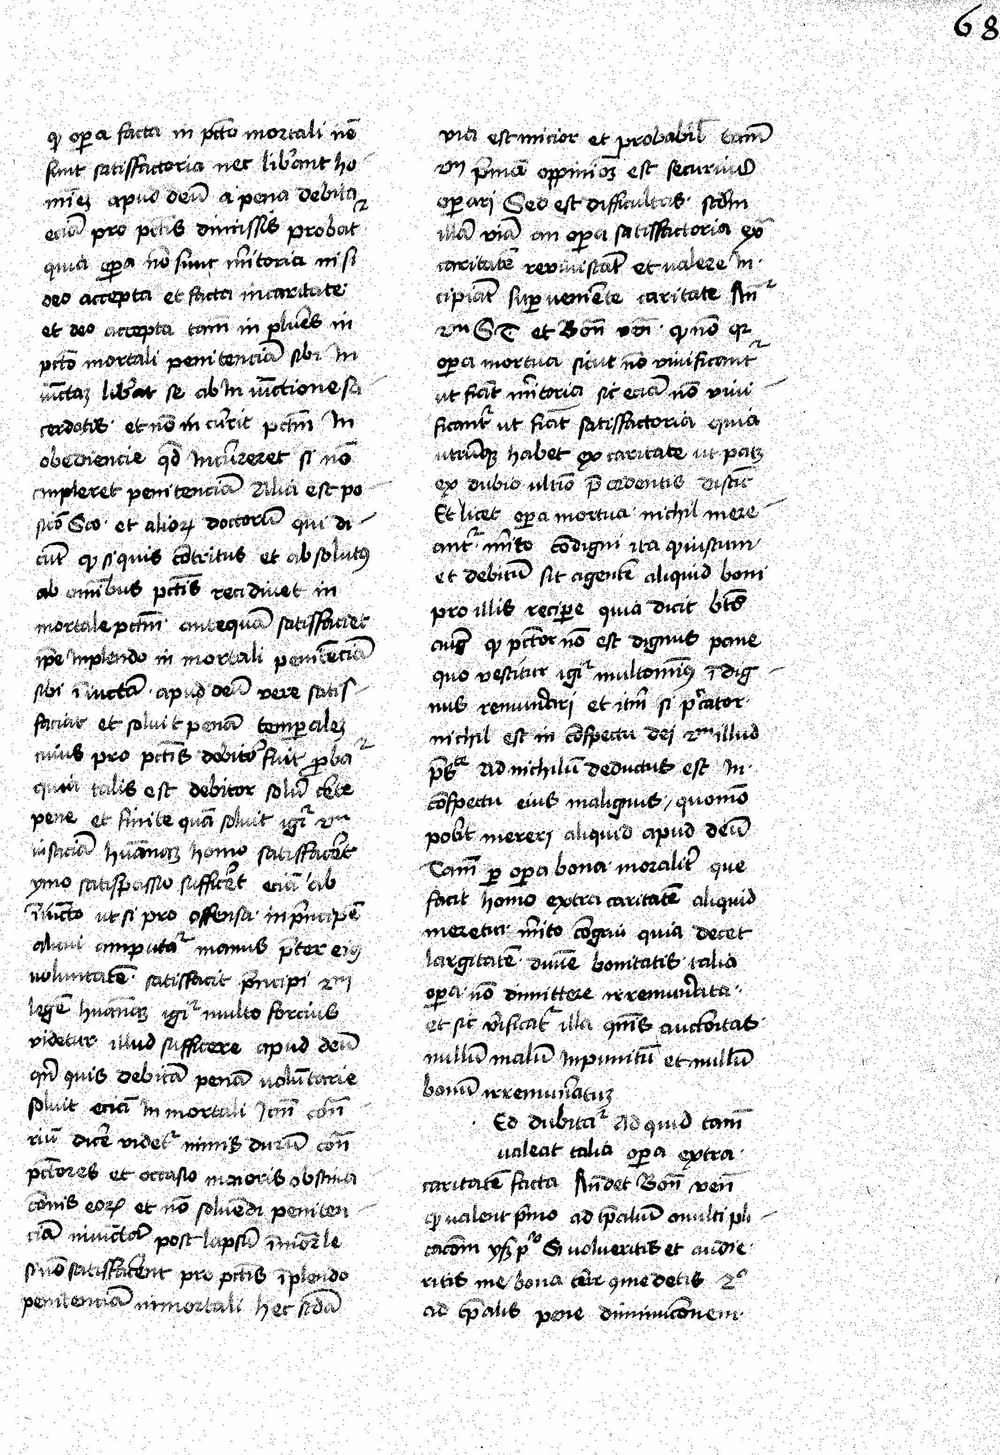 68
qͥ opera facta in pcto mortali nō
sunt satisfactoria nec liberant ho
mīeꝫ apud deū a pena debita
eciā pro pctīs dimissis probatᷣ
quia opera nō sunt mͥitoria nisi
deo accepta et facta in caritate
et deo accepta tam̄ in plures in
pcto mortali penitenciā sibi in
iūctaꝫ liberat se ab in iūctione sa
cerdotis et nō in currit pctm̄ In
obediencie qd̄ Incurreret si nō
impleret penitenciā Alia est po
sicō Sco et alioꝝ doctorū qui di
cūt qͥ si quis cōtritus et absolutꝰ
ab omībus pctīs recidiuet in
mortale pctm̄ antequā satisfaciet
ip̄e Inplendo in mortali penitenciā
sibi īiuctā apud deū vere satis
faciat et soluit penā temporaleꝫ
cuius pro pctīs debitor fuit probaᷣ
quia talis est debitor solū certe
pene et finite quā soluit igiͬ 2m
iusticiā hūanaꝫ homo satisfaceret
ymo satispassio sufficeret eciā ab
īiuicto ut si pro offensa in pͥncipē
alicui amputaᷣ manus preter eiꝰ
voluntatē satisfacit pͥncipi 2m
legē hūanaꝫ igiͬ multo forcius
videtur illud sufficere apud deū
qn̄ quis debitā penā voluntarie
soluit eciā In mortali Itm̄ con̄
riū dice videtͬ nimis durū con̄
pctores et occasio maioris obstina
cōnis eoꝝ et nō soluendi peniten
ciā iniuctā post lapsū ī mōrle
si nō satisfacerent pro pctīs īplendo
penitenciā in mortali hec scdā
via est micior et probabil̄ tam̄
2m pͥmā oppinioꝫ est securius
operari Sed est difficultas scdm̄
illā viā an opera satisfactoria ex̄
caritatē reviuiscāt et valere In
cipiāt superueniēte caritate An̄ᷣ
2m S T et Bon̄ ven̄ qͥ nō qꝛ
opera mortua sicut nō viuificantᷣ
ut fiāt mͥitoria sic eciā nō viui
ficantᷣ ut fiāt satisfactoria quia
utrūqꝫ habet ex caritate ut patꝫ
ex dubio ultīo pͤcedentis distīc
Et licet opera mortua nichil mere
antᷣ mͥito cōdigni ita qͥ iustum
et debitū sit agentē aliquid boni
pro illis recipere quia dicit btūs
auḡ qͥ pctor nō est dignus pane
quo vestitur igiͬ multominꝰ īdig
nus remunerari et itm̄ si pͤcator
nichil est in cōspectu dei 2m illud
ps̄te Ad nichilū deductus est In
cōspectu eius malignus quomō
poterit mereri aliquid apud deū
Tam̄ per opera bona moraliter que
facit homo extra caritatē aliquid
meretur mͥito cōgrui quia decet
largitatē diuīe bonitatis talia
opera nō dimittere irremunerata
et sic verificatͬ illa cōīs auctoritas
nullū malū Inpunitū et nullū
bonū irremuneratuꝫ
Ed dubitaᷣ Ad quid tam̄
valeat talia opera extra
caritatē facta Rn̄det Bon̄ ven̄
qͥ valent pͥmo ad tp̄aliū multipli
cacōm ys̄ pͥo Si volueritis et audie
ritis me bona terre comedetis 2o
ad tp̄alis pene diminucōnem